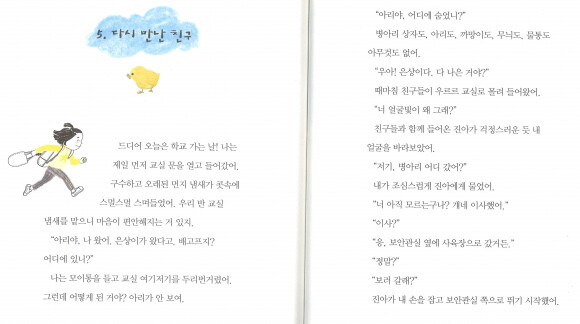 5. 다시 만난 친구
드디어 오늘은 학교 가는 날! 나는
제일 먼저 교실 문을 열고 들어갔어.
구수하고 오래된 먼지 냄새가 콧속에
스멀스멀 스며들었어. 우리 반 교실
냄새를 맡으니 마음이 편안해지는 거 있지.
"아리야, 나 왔어. 은상이가 왔다고. 배고프지?
어디에 있니?"
나는 모이통을 들고 교실 여기저기를 두리번거렸어.
그런데 어떻게 된 거야? 아리가 안 보여.
"아리야, 어디에 숨었니?"
병아리 상자도, 아리도, 까망이도, 무늬도, 물통도
아무것도 없어.
"우아! 은상이다. 다 나은 거야?"
때마침 친구들이 우르르 교실로 몰려 들어왔어.
"너 얼굴빛이 왜 그래?"
친구들과 함께 들어온 진아가 걱정스러운 듯 내
얼굴을 바라보았어.
"저기, 병아리 어디 갔어?"
내가 조심스럽게 진아에게 물었어.
"너 아직 모르는구나? 걔네 이사했어."
"이사?"
"응, 보안관실 옆에 사육장으로 갔거든."
"정말?"
"보러 갈래?"
진아가 내 손을 잡고 보안관실 쪽으로 뛰기 시작했어.